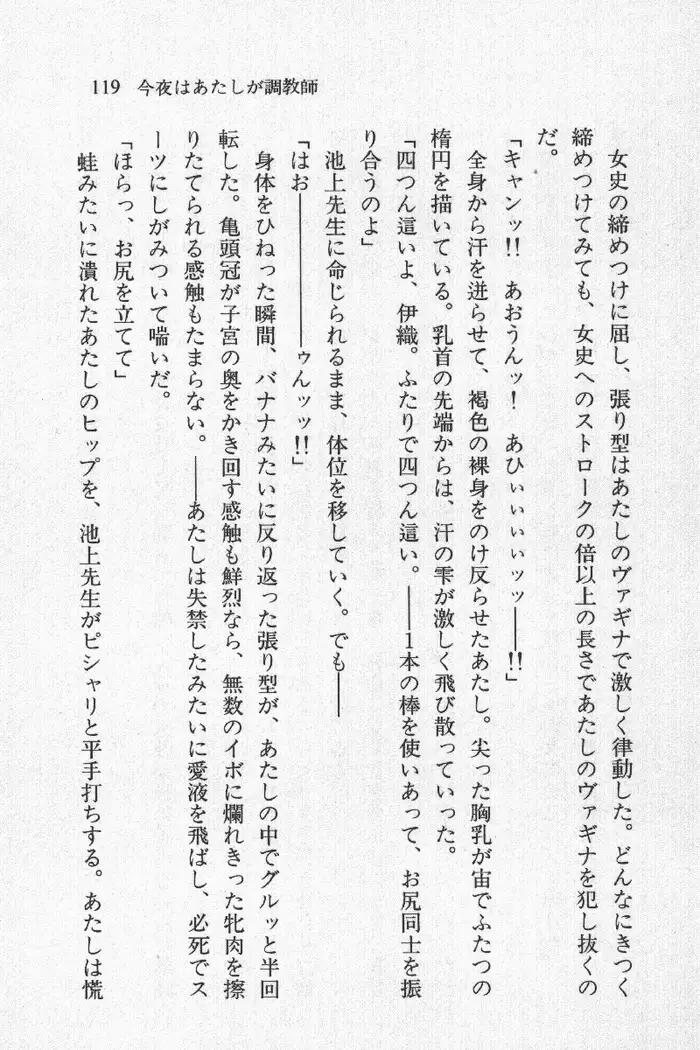 119 今夜はあたしが調教師
女史の締めつけに屈し、張り型はあたしのヴァギナで激しく律動した。どんなにきつく
締めつけてみても、女史へのストロークの倍以上の長さであたしのヴァギナを犯し抜くの
だ。
「キャンッ!! あおうんッ! あひぃぃぃぃッッ――!!」
全身から汗を迸らせて、褐色の裸身をのけ反らせたあたし。尖った胸乳が宙でふたつの
楕円を描いている。乳首の先端からは、汗の雫が激しく飛び散っていった。
「四つん這いよ、伊織。ふたりで四つん這い。――1本の棒を使いあって、お尻同士を振
り合うのよ」
池上先生に命じられるまま、体位を移していく。でも――
「はお――――――ゥんッッ!!」
身体をひねった瞬間、バナナみたいに反り返った張り型が、あたしの中でグルッと半回
転した。亀頭冠が子宮の奥をかき回す感触も鮮烈なら、無数のイボに爛れきった牝肉を擦
りたてられる感触もたまらない。――あたしは失禁したみたいに愛液を飛ばし、必死でス
ーツにしがみついて喘いだ。
「ほらっ、お尻を立てて」
蛙みたいに潰れたあたしのヒップを、池上先生がピシャリと平手打ちする。あたしは慌